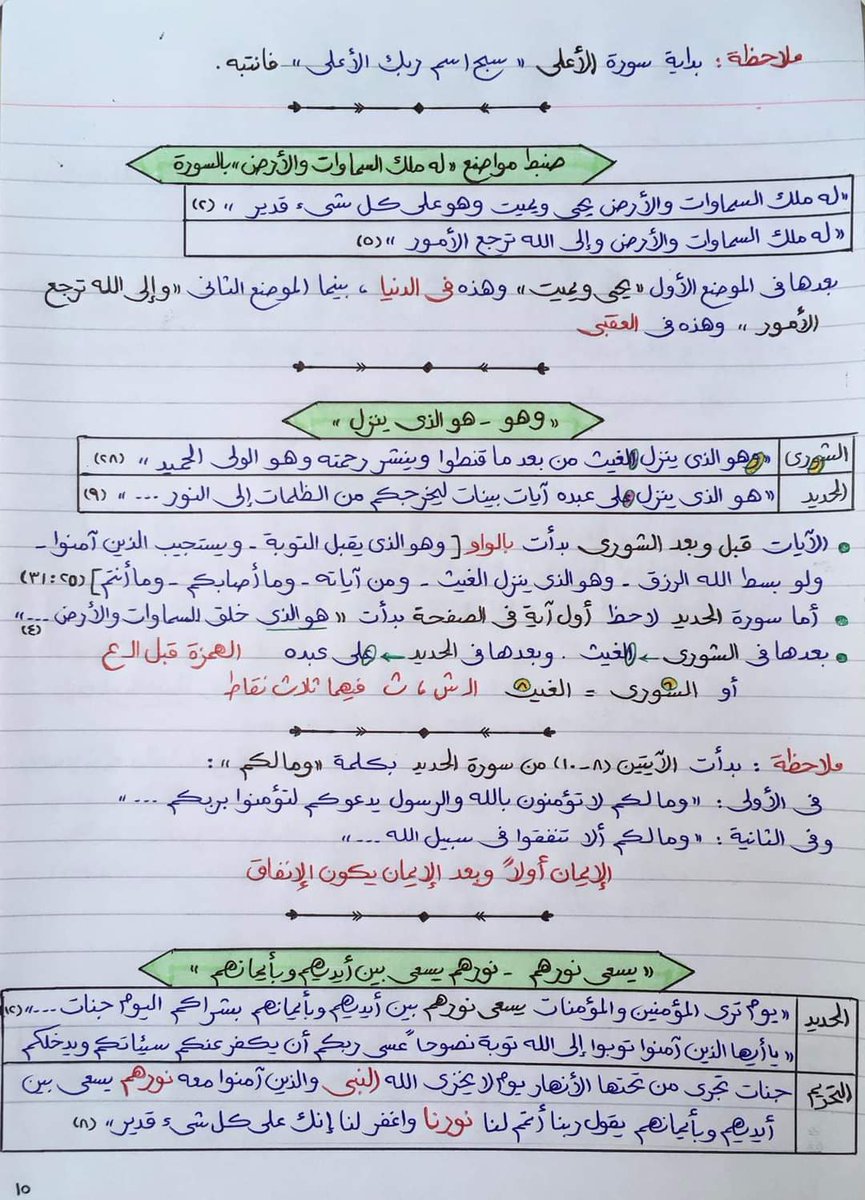 ملاحظة : بداية سورة الأعلى « سبح اسم ربك الأعلى » فانتبه .
ضبط مواضع « له ملك السماوات والأرض » بالسورة
« له ملك السماوات والأرض يحيى ويميت وهو على كل شىء قدير » (٢)
« له ملك السماوات والأرض وإلى الله ترجع الأمور » (٥)
بعدها فى الموضع الأول « يحيى ويميت » وهذه فى الدنيا ، بينما الموضع الثانى « وإلى الله ترجع
الأمور » وهذه فى العقبى
« وهو - هو الذى ينزل »
الشورى « وهو الذى ينزل الغيث من بعد ما قنطوا وينشر رحمته وهو الولى الحميد » (٢٨)
الحديد « هو الذى ينزل على عبده آيات بينات ليخرجكم من الظلمات إلى النور ... » (٩)
الآيات قبل وبعد الشورى بدأت بالواو [ وهو الذى يقبل التوبة - ويستجيب الذين آمنوا -
ولو بسط الله الرزق - وهو الذى ينزل الغيث - ومن آياته - وما أصابكم - وما أنتم ] (٢٥ : ٣١)
أما سورة الحديد لاحظ أول آية فى الصفحة بدأت « هو الذى خلق السماوات والأرض ... » (٤)
بعدها فى الشورى ← الغيث . وبعدها فى الحديد ← على عبده الهمزة قبل الـ ع
أو الشورى = الغيث الـ ش ، ث فيهما ثلاث نقاط
ملاحظة : بدأت الآيتين (٨-١٠) من سورة الحديد بكلمة « ومالكم » :
فى الأولى : « ومالكم لا تؤمنون بالله والرسول يدعوكم لتؤمنوا بربكم ... »
وفى الثانية : « ومالكم ألا تنفقوا فى سبيل الله ... »
الإيمان أولاً وبعد الإيمان يكون الإنفاق
« يسعى نورهم - نورهم يسعى بين أيديهم وبأيمانهم »
الحديد « يوم ترى المؤمنين والمؤمنات يسعى نورهم بين أيديهم وبأيمانهم بشراكم اليوم جنات ... » (١٢)
« يا أيها الذين آمنوا توبوا إلى الله توبة نصوحاً عسى ربكم أن يكفر عنكم سيئاتكم ويدخلكم
التحريم جنات تجرى من تحتها الأنهار يوم لا يخزى الله النبى والذين آمنوا معه نورهم يسعى بين
أيديهم وبأيمانهم يقولون ربنا أتمم لنا نورنا واغفر لنا إنك على كل شىء قدير » (٨)
١٥